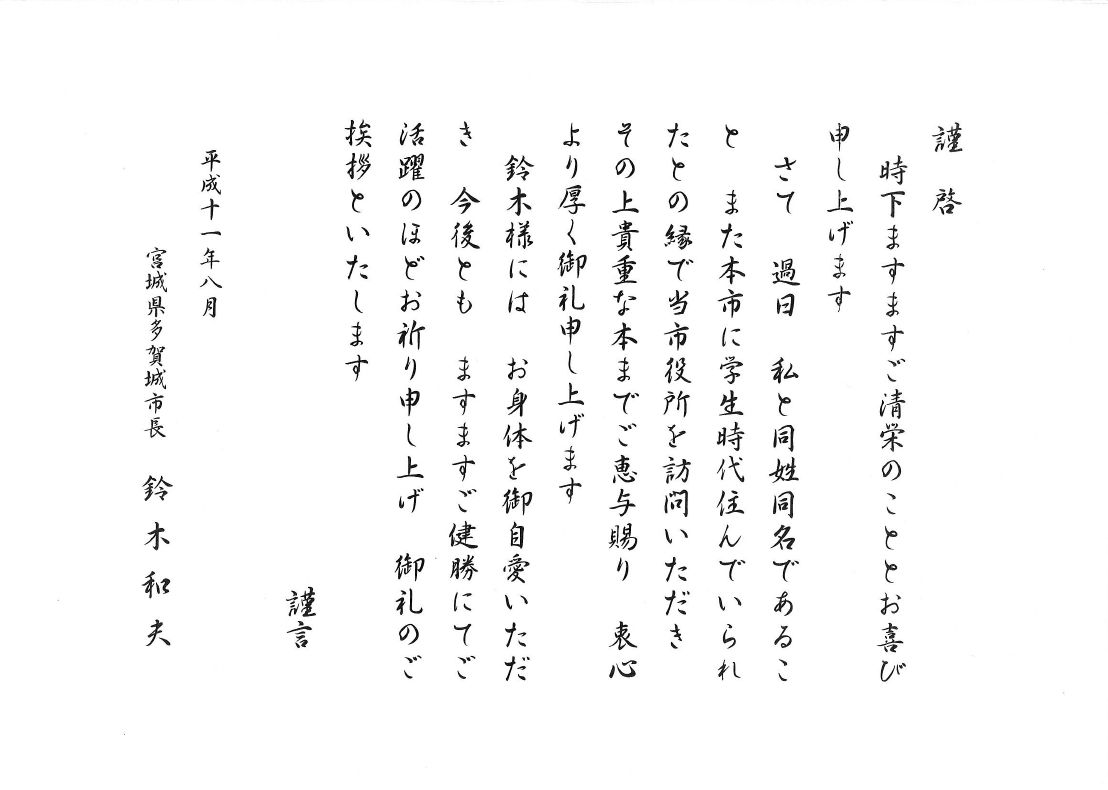 謹啓
時下ますますご清栄のこととお喜び
申し上げます
さて　過日　私と同姓同名であるこ
と　また本市に学生時代住んでいられ
たとの縁で当市役所を訪問いただき
その上貴重な本までご恵与賜り　衷心
より厚く御礼申し上げます
鈴木様には　お身体を御自愛いただ
き　今後とも　ますますご健勝にてご
活躍のほどお祈り申し上げ　御礼のご
挨拶といたします
謹言
平成十一年八月
宮城県多賀城市長　鈴木和夫